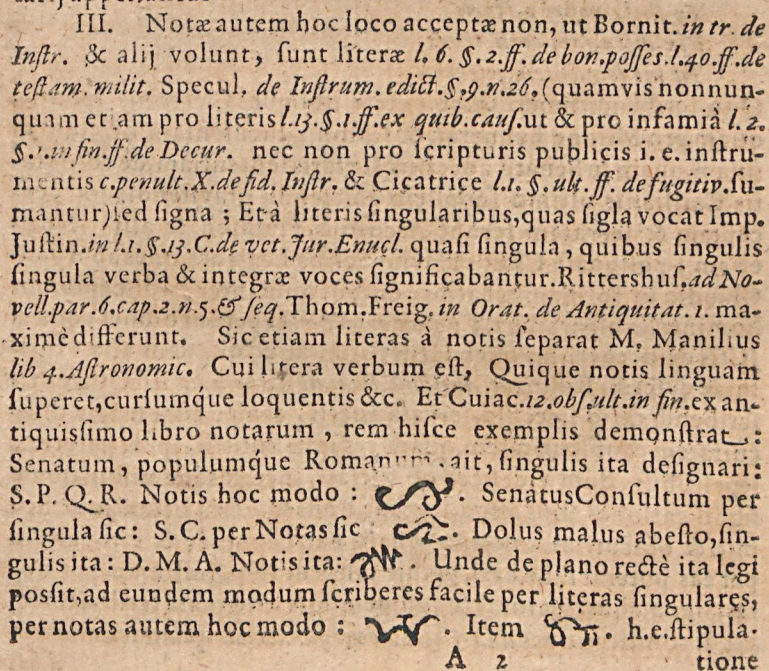 III. Notæ autem hoc loco acceptæ non, ut Bornit. in tr. de
Instr. & alij volunt, sunt literæ l. 6. §. 2. ff. de bon. posses. l. 40. ff. de
testam. milit. Specul. de Instrum. edict. §. 9. n. 26. (quamvis nonnun-
quam etiam pro literis l. 13. §. 1. ff. ex quib. caus. ut & pro infamiâ l. 2.
§. 1. in fin. ff. de Decur. nec non pro scripturis publicis i. e. instru-
mentis c. penult. X. de fid. Instr. & Cicatrice l. 1. §. ult. ff. de fugitiv. su-
mantur) sed signa ; Et à literis singularibus, quas sigla vocat Imp.
Justin. in l. 1. §. 13. C. de vet. Jur. Enucl. quasi singula, quibus singulis
singula verba & integræ voces significabantur. Rittershus. ad No-
vell. par. 6. cap. 2. n. 5. & seq. Thom. Freig. in Orat. de Antiquitat. 1. ma-
ximè differunt. Sic etiam literas à notis separat M. Manilius
lib 4. Astronomic. Cui litera verbum est, Quique notis linguam
superet, cursumque loquentis &c. Et Cuiac. 12. obs. ult. in fin. ex an-
tiquissimo libro notarum, rem hisce exemplis demonstrat :
Senatum, populumque Romanum ait, singulis ita designari:
S. P. Q. R. Notis hoc modo : . Senatus Consultum per
singula sic: S. C. per Notas sic . Dolus malus abesto, sin-
gulis ita: D. M. A. Notis ita: . Unde de plano rectè ita legi
possit, ad eundem modum scriberes facile per literas singulares,
per notas autem hoc modo : . Item . h. e. stipula-
A 2 tione